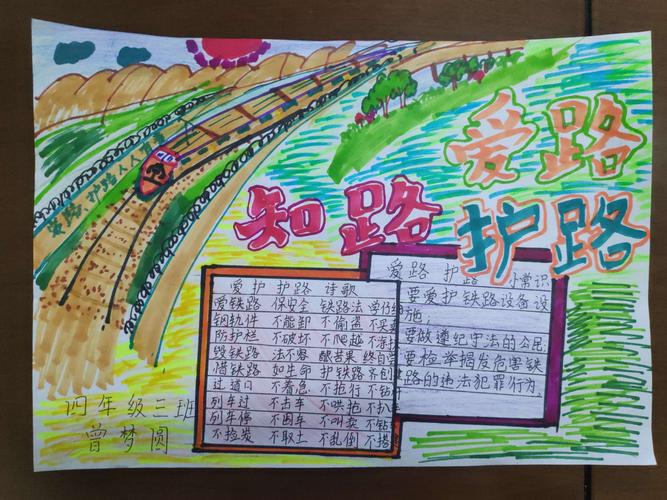 爱路
知路 护路
爱路 护路人人
爱护护路 诗歌
爱铁路 保安全 铁路法 学仔细
钢轨件 不能卸 不偷盗 不买卖
防护栏 不破坏 不爬越
毁铁路 法不容 酿苦果 终自
惜铁路 如生命 护铁路 齐创
过道口 不着急 不抢行 不钻
列车过 不击车 不哄抢 不扒
列车停 不困车 不叫卖 不钻
不捡炭 不取土 不乱倒 不搭
爱路 护路 小常识
要爱护铁路设备设
施;
要做遵纪守法的公民
要检举揭发危害铁
路的违法犯罪行为。
四年级三班
曾梦圆